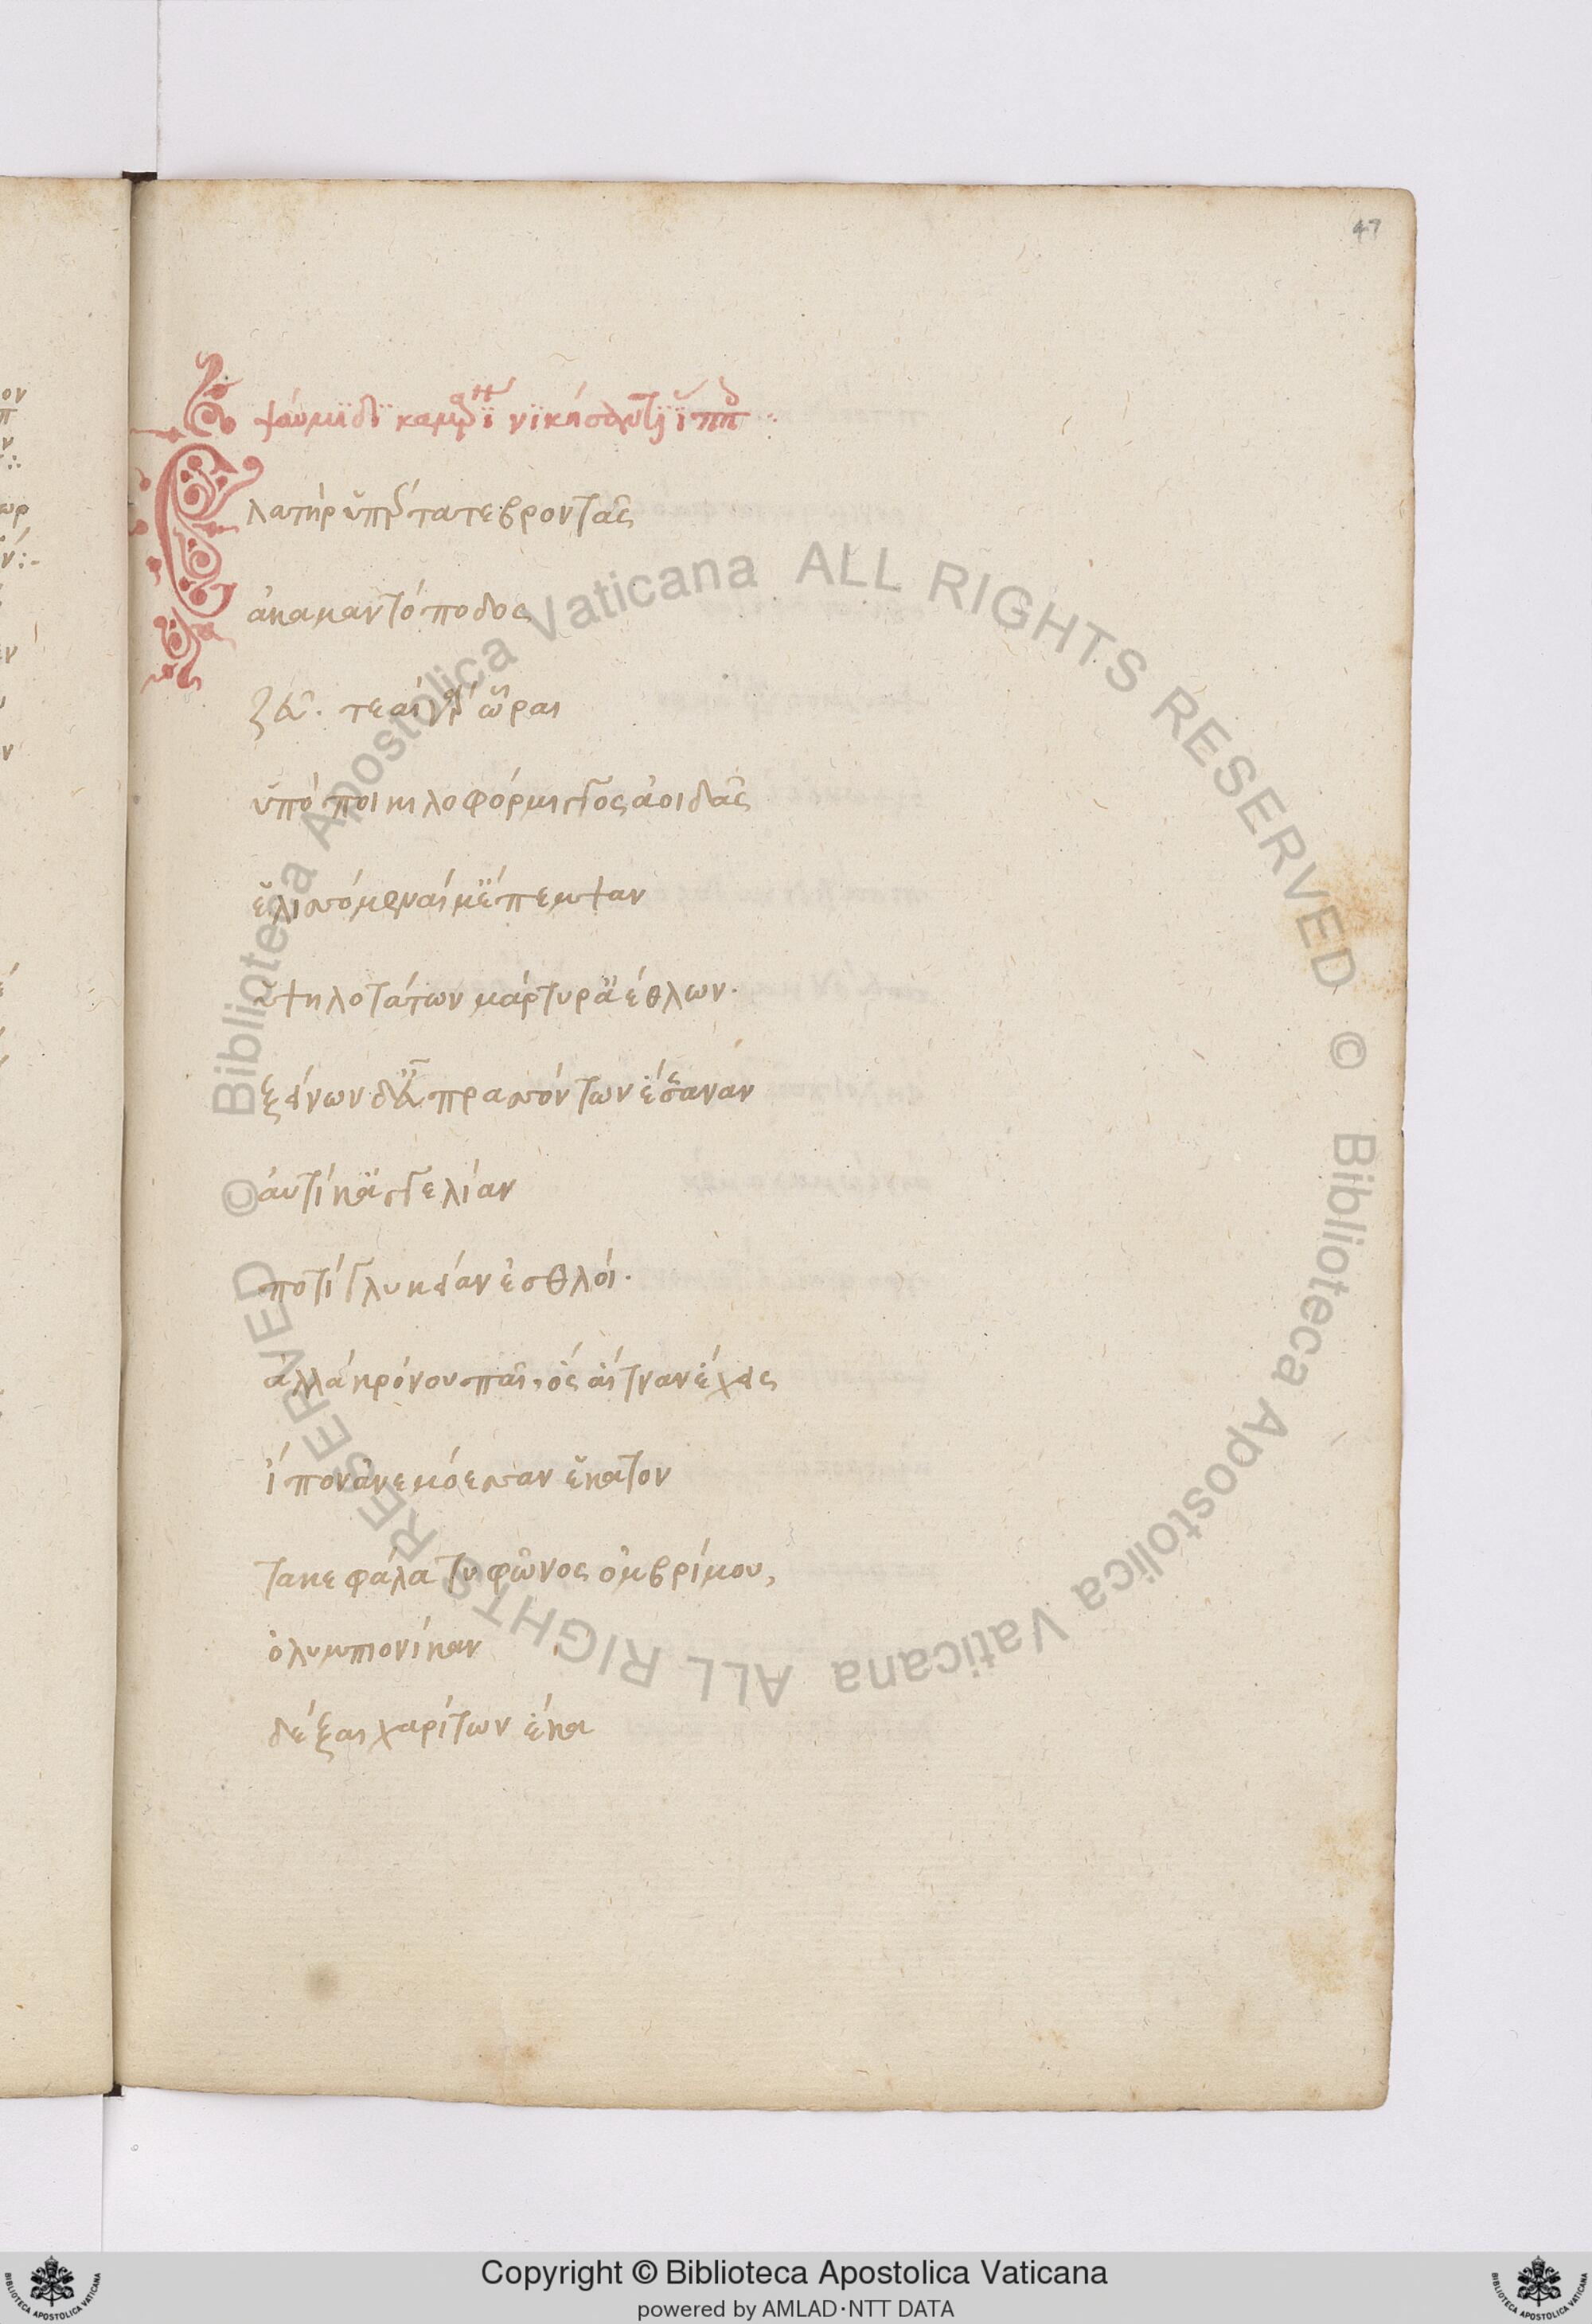 47
ψαύμιδι καμαρηναίῳ νικήσαντι ἵπποις
Ἐλατὴρ ὑπέρτατε βροντᾶς
ἀκαμαντόποδος
ζεῦ. τεαὶ γὰρ ὧραι
ὑπὸ ποικιλοφόρμιγγος ἀοιδᾶς
ἑλισσόμεναί μ' ἔπεμψαν
ὑψηλοτάτων μάρτυρ' ἀέθλων.
ξείνων δ' εὖ πρασσόντων ἔσαναν
αὐτίκ' ἀγγελίαν
ποτὶ γλυκεῖαν ἐσθλοί.
ἀλλὰ κρόνου παῖ, ὃς αἴτναν ἔχεις
ἶπον ἀνεμόεσσαν ἑκατον
τακεφάλα τυφῶνος ὀμβρίμου,
ὀλυμπιονίκαν
δέξαι χαρίτων ἕκα
Copyright © Biblioteca Apostolica Vaticana
powered by AMLAD·NTT DATA
© Biblioteca Apostolica Vaticana ALL RIGHTS RESERVED
© Biblioteca Apostolica Vaticana ALL RIGHTS RESERVED
BIBLIOTECA APOSTOLICA VATICANA
BIBLIOTECA APOSTOLICA VATICANA